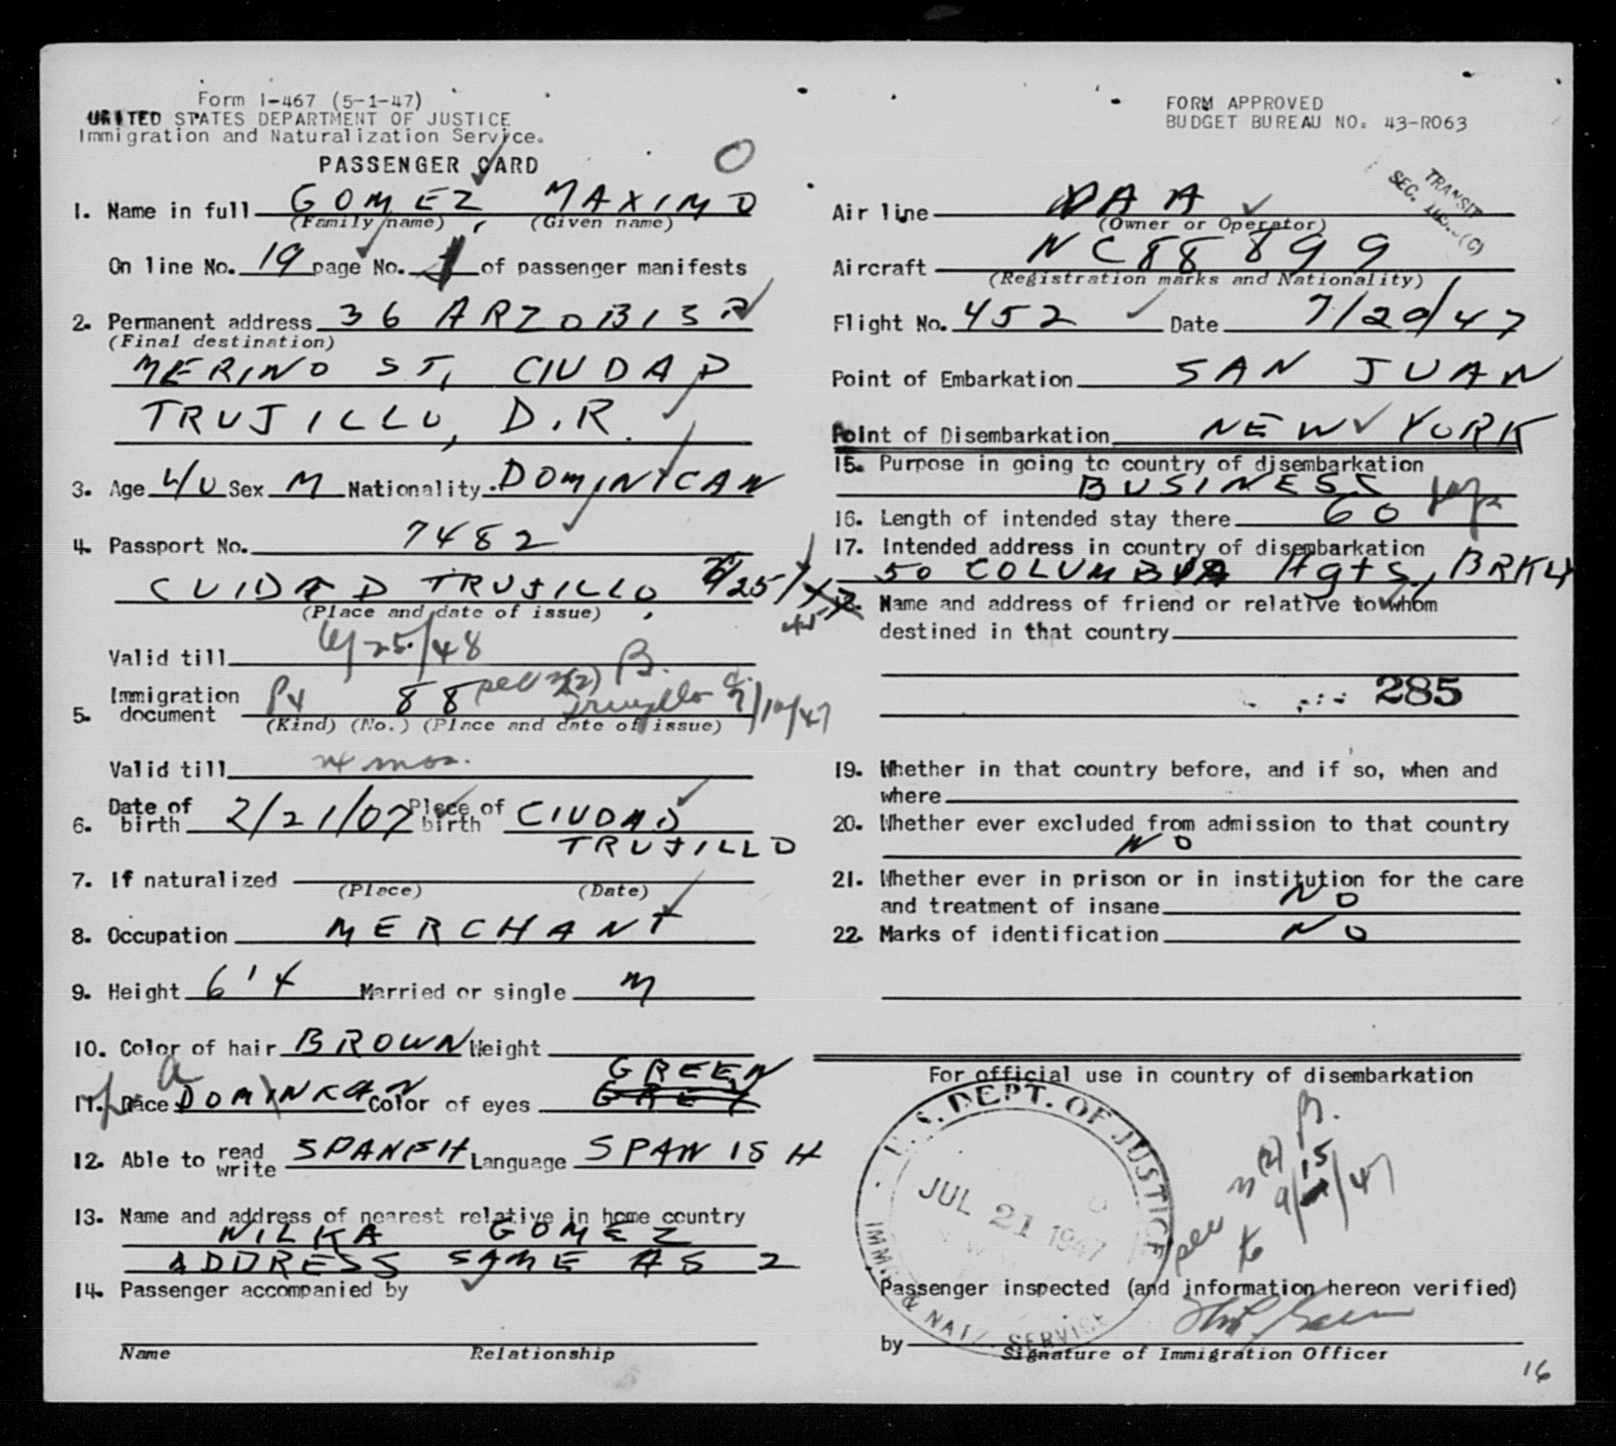 Form I-467 (5-1-47)
UNITED STATES DEPARTMENT OF JUSTICE
Immigration and Naturalization Service.
PASSENGER CARD
O
1. Name in full GOMEZ, MAXIMO
(Family name) (Given name)
On line No. 19 page No. of passenger manifests
2. Permanent address 36 ARZOBISP
(Final destination)
MERINO ST, CIUDAD
TRUJILLO, D.R.
3. Age 40 Sex M Nationality DOMINICAN
4. Passport No. 7482
CUIDAD TRUJILLO, 6/25/47
(Place and date of issue)
Valid till 6/25/48
5. Immigration document P4 88 sec 3(2) C. Trujillo 7/10/47
(Kind) (No.) (Place and date of issue)
Valid till 4 mos.
6. Date of birth 2/21/07 Place of birth CIUDAD
TRUJILLO
7. If naturalized
(Place) (Date)
8. Occupation MERCHANT
9. Height 6'4 Married or single M
10. Color of hair BROWN Weight
GREEN
11. Race DOMINICAN Color of eyes GREY
12. Able to read write SPANISH Language SPANISH
13. Name and address of nearest relative in home country
NILKA GOMEZ
ADDRESS SAME AS 2
14. Passenger accompanied by
Name Relationship
FORM APPROVED
BUDGET BUREAU NO. 43-R063
TRANSIT
SEC. (C)
Air line PAA
(Owner or Operator)
Aircraft NC88899
(Registration marks and Nationality)
Flight No. 452 Date 7/20/47
Point of Embarkation SAN JUAN
Point of Disembarkation NEW YORK
15. Purpose in going to country of disembarkation
BUSINESS
16. Length of intended stay there 60
17. Intended address in country of disembarkation
50 COLUMBIA Hgts, BRKLY
18. Name and address of friend or relative to whom
destined in that country
285
19. Whether in that country before, and if so, when and
where
20. Whether ever excluded from admission to that country
NO
21. Whether ever in prison or in institution for the care
and treatment of insane NO
22. Marks of identification NO
For official use in country of disembarkation
U. S. DEPT. OF JUSTICE
JUL 21 1947
IMM. & NAT. SERVICE
sec 3(2) B.
to 9/15/47
Passenger inspected (and information hereon verified)
by
Signature of Immigration Officer
16